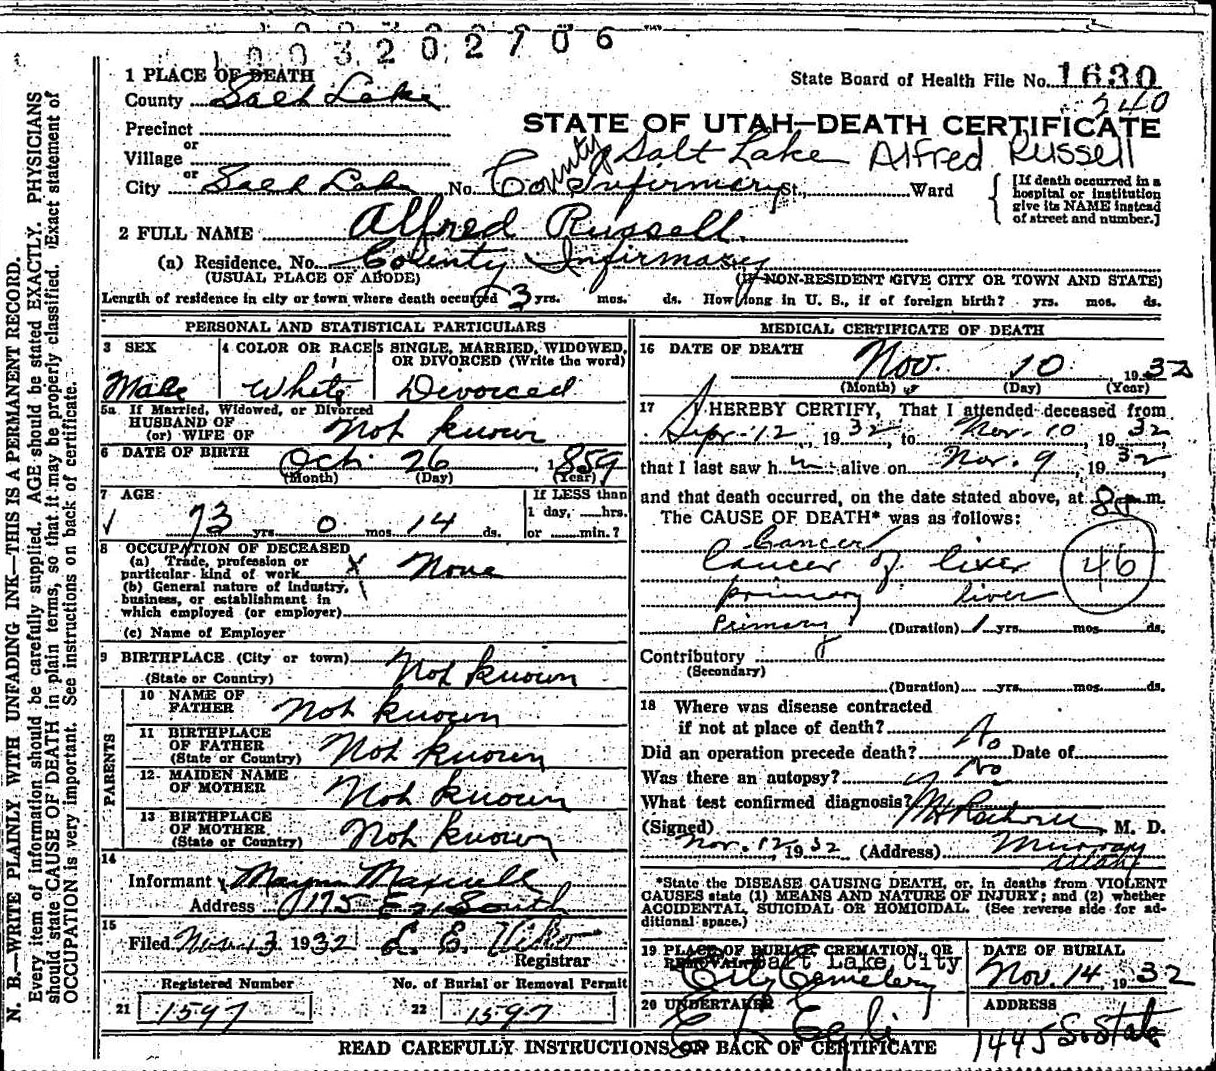 1003202706
1 PLACE OF DEATH
State Board of Health File No. 1630
County Salt Lake
240
Precinct
STATE OF UTAH—DEATH CERTIFICATE
or
Village
County Salt Lake Alfred Russell
or
City Salt Lake No. County Infirmary St., Ward
[If death occurred in a hospital or institution give its NAME instead of street and number.]
2 FULL NAME Alfred Russell
(a) Residence. No. County Infirmary St.
(USUAL PLACE OF ABODE) (IF NON-RESIDENT GIVE CITY OR TOWN AND STATE)
Length of residence in city or town where death occurred 3 yrs. mos. ds. How long in U. S., if of foreign birth? yrs. mos. ds.
PERSONAL AND STATISTICAL PARTICULARS
3 SEX 4 COLOR OR RACE 5 SINGLE, MARRIED, WIDOWED, OR DIVORCED (Write the word)
Male White Divorced
5a If Married, Widowed, or Divorced
HUSBAND OF
(or) WIFE OF Not known
6 DATE OF BIRTH Oct. 26, 1859
(Month) (Day) (Year)
7 AGE If LESS than
1 day, hrs.
73 yrs. 0 mos. 14 ds. or min.?
8 OCCUPATION OF DECEASED
(a) Trade, profession or
particular kind of work X None
(b) General nature of industry,
business, or establishment in
which employed (or employer)
(c) Name of Employer
9 BIRTHPLACE (City or town)
(State or Country) Not known
PARENTS
10 NAME OF
FATHER Not known
11 BIRTHPLACE
OF FATHER
(State or Country) Not known
12 MAIDEN NAME
OF MOTHER Not known
13 BIRTHPLACE
OF MOTHER
(State or Country) Not known
14
Informant Maxwell
Address 1175 E. South
15
Filed Nov. 13 1932
Registrar
Registered Number No. of Burial or Removal Permit
21 1597 22 1597
MEDICAL CERTIFICATE OF DEATH
16 DATE OF DEATH Nov. 10, 1932
(Month) (Day) (Year)
17 I HEREBY CERTIFY, That I attended deceased from
Sept. 12, 1932, to Nov. 10, 1932
that I last saw him alive on Nov. 9, 1932,
and that death occurred, on the date stated above, at m.
The CAUSE OF DEATH* was as follows:
Cancer
Cancer of liver 46
primary liver
Primary (Duration) 1 yrs. mos. ds.
Contributory
(Secondary)
(Duration) yrs. mos. ds.
18 Where was disease contracted
if not at place of death?
Did an operation precede death? No Date of
Was there an autopsy? No
What test confirmed diagnosis?
(Signed) M. D.
Nov. 12 1932 (Address) Murray
Utah
*State the DISEASE CAUSING DEATH, or, in deaths from VIOLENT
CAUSES state (1) MEANS AND NATURE OF INJURY; and (2) whether
ACCIDENTAL, SUICIDAL OR HOMICIDAL. (See reverse side for ad-
ditional space.)
19 PLACE OF BURIAL, CREMATION, OR REMOVAL DATE OF BURIAL
Salt Lake City
City Cemetery Nov. 14, 1932
20 UNDERTAKER ADDRESS
E K Egli 1445 So. State
READ CAREFULLY INSTRUCTIONS ON BACK OF CERTIFICATE
N. B.—WRITE PLAINLY WITH UNFADING INK—THIS IS A PERMANENT RECORD.
Every item of information should be carefully supplied. AGE should be stated EXACTLY. PHYSICIANS
should state CAUSE OF DEATH in plain terms, so that it may be properly classified. Exact statement of
OCCUPATION is very important. See instructions on back of certificate.